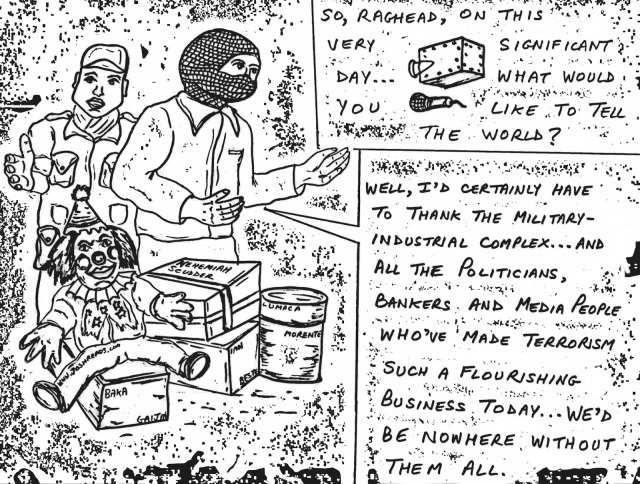 SO, RAGHEAD, ON THIS
VERY SIGNIFICANT
DAY... WHAT WOULD
YOU LIKE TO TELL
THE WORLD?
WELL, I'D CERTAINLY HAVE
TO THANK THE MILITARY-
INDUSTRIAL COMPLEX...AND
ALL THE POLITICIANS,
BANKERS AND MEDIA PEOPLE
WHO'VE MADE TERRORISM
SUCH A FLOURISHING
BUSINESS TODAY...WE'D
BE NOWHERE WITHOUT
THEM ALL.
NEHEMIAH
SCUDDER
LUMACA
MORENTE
IAN
BAKA
GAIJIN